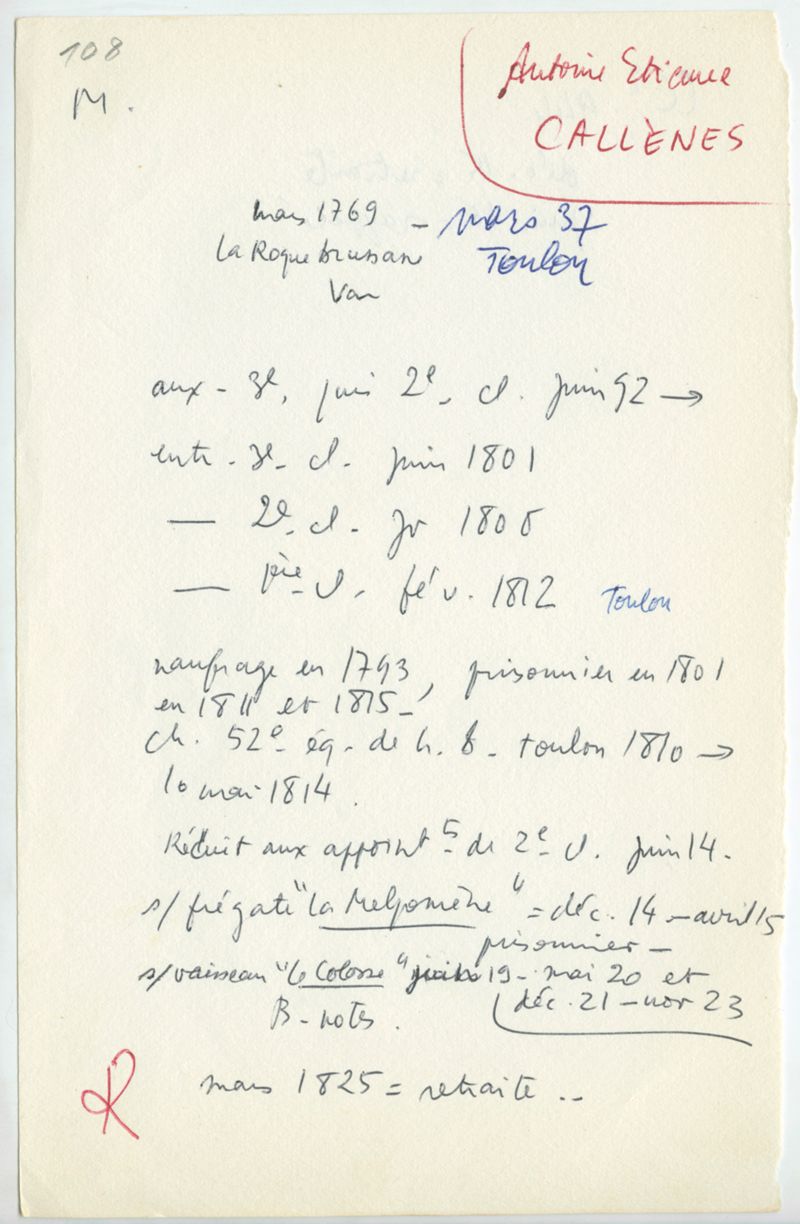 108
M.
Antoine Etienne
CALLÈNES
mars 1769 – mars 37
La Roquebrussane Toulon
Var
aux - 3e, puis 2e. cl. juin 92 →
entr. 3e. cl. juin 1801
— 2e. cl. 1806
— 1ère cl. fév. 1812 Toulon
naufrage en 1793, prisonnier en 1801
en 1811 et 1815 –
ch. 52e éq. de h. b. toulon 1810 →
10 mai 1814.
Réduit aux appointts de 2e cl. juin 14.
s/ frégate "la Melpomène" = déc. 14 – avril 15
prisonnier –
s/ vaisseau "le Colosse" 19 – mai 20 et
déc. 21 – nov 23
B. notes.
R
mars 1825 = retraite ..